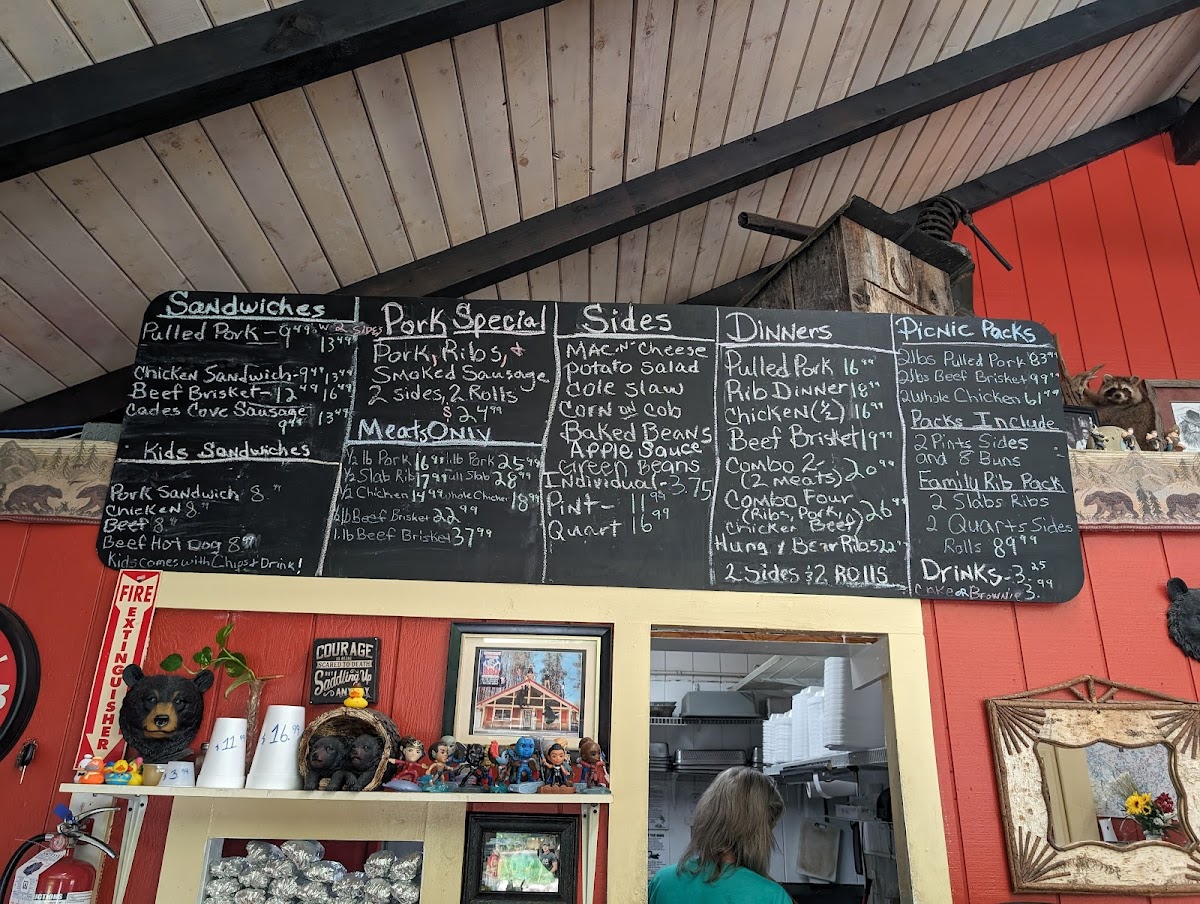 Sandwiches
Pulled Pork - 9.49 w/2 sides
13.49
Chicken Sandwich - 9.49 13.49
Beef Brisket - 12.49 16.49
Cades Cove Sausage
9.49 13.49
Kids Sandwiches
Pork Sandwich 8.
Chicken 8.
Beef 8.
Beef Hot Dog 8.
Kids comes with Chips & Drink!
Pork Special
Pork, Ribs, &
Smoked Sausage
2 sides, 2 Rolls
$24.99
Meats Only
1/2 lb Pork 16.99 1 lb Pork 25.99
1/2 Slab Rib 17.99 Full Slab 28.99
1/2 Chicken 14.99 Whole Chicken 18.99
1/2 lb Beef Brisket 22.99
1 lb Beef Brisket 37.99
Sides
Mac n' Cheese
Potato Salad
Cole Slaw
Corn on Cob
Baked Beans
Apple Sauce
Green Beans
Individual - 3.75
Pint - 11.99
Quart 16.99
Dinners
Pulled Pork 16.99
Rib Dinner 18.99
Chicken (1/2) 16.99
Beef Brisket 19.99
Combo 2 - 20.99
(2 meats)
Combo Four 26.99
(Ribs, Pork,
Chicken Beef)
Hungry Bear Ribs 22.
2 Sides & 2 Rolls
Picnic Packs
2lbs Pulled Pork 83.99
2lbs Beef Brisket 99.
2 Whole Chicken 61.99
Packs Include
2 Pints Sides
and 8 Buns
Family Rib Pack
2 Slabs Ribs
2 Quarts Sides
Rolls 89.99
Drinks - 3.25
Cake or Brownie 3.99
FIRE
EXTINGUISHER
COURAGE
IS BEING
SCARED TO DEATH
BUT
Saddling Up
ANYWAY
$11.99
$16.99
3